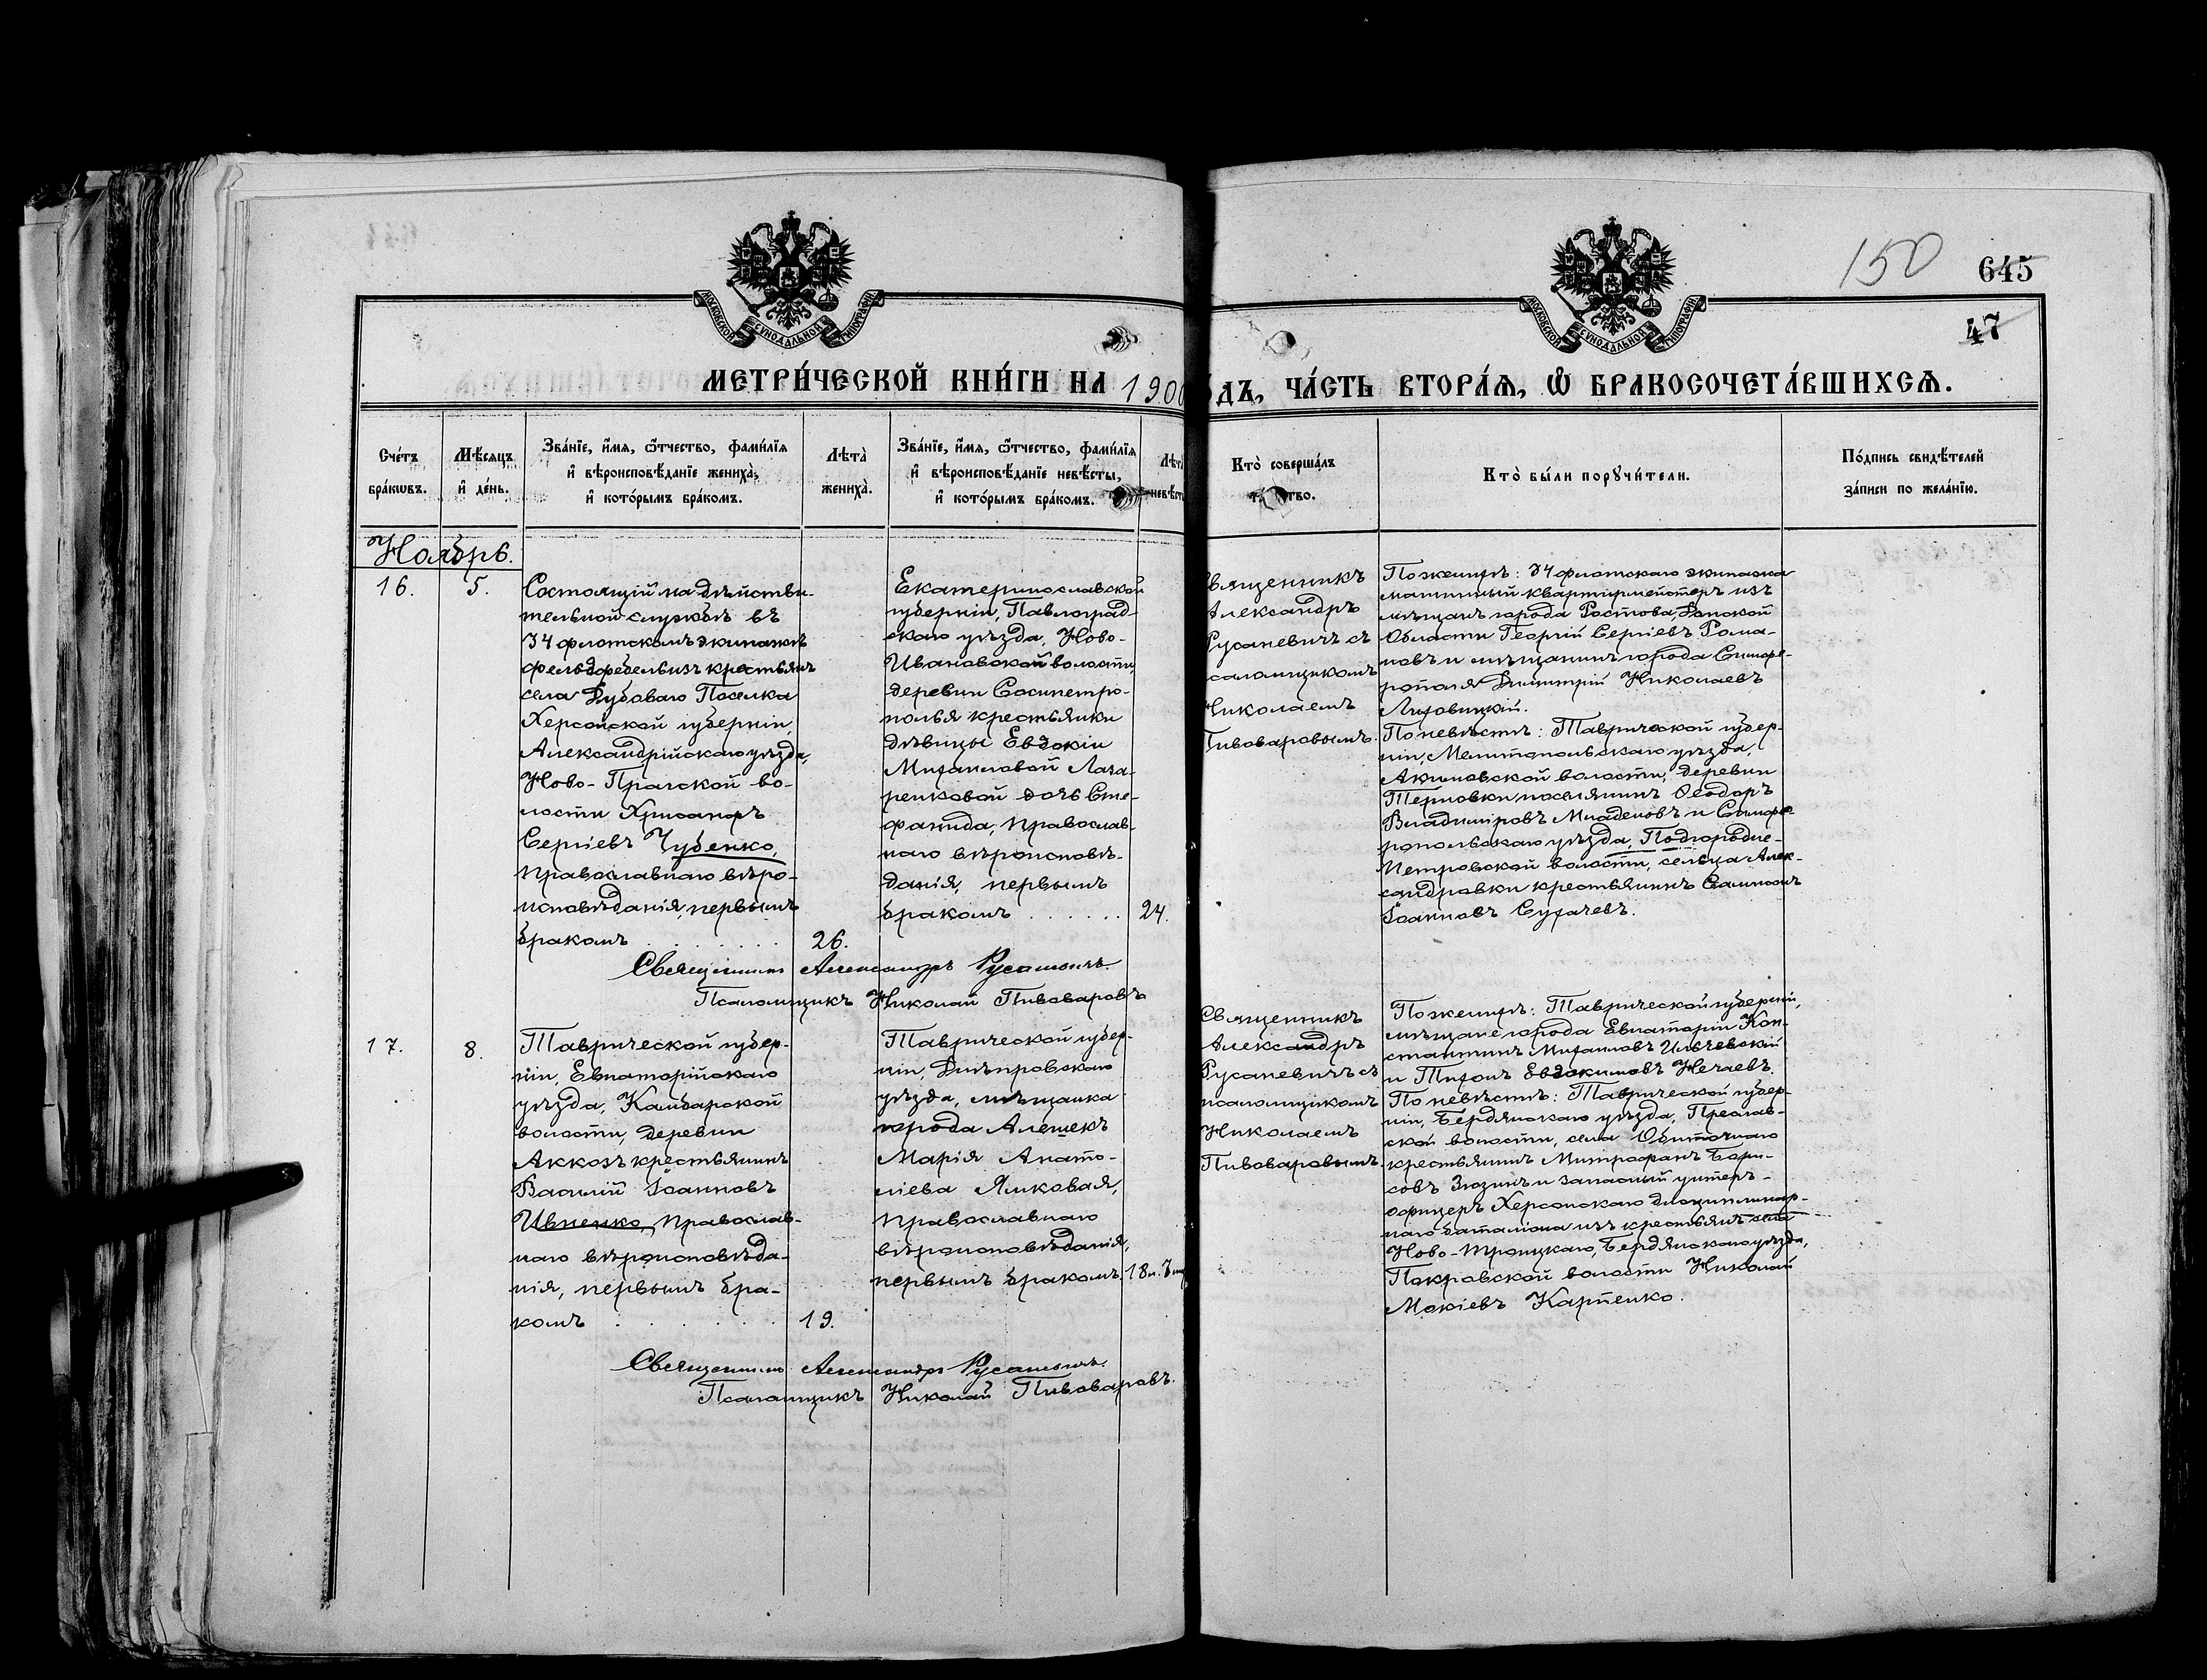 150
645
47
МОСКОВСКОЙ СѴНОДАЛЬНОЙ ТИПОГРАФІИ
МОСКОВСКОЙ СѴНОДАЛЬНОЙ ТИПОГРАФІИ
МЕТРИ́ЧЕСКОЙ КНИ́ГИ НА 1900
ѻдъ, ЧА́СТЬ ВТОРА́Ѧ, Ѽ БРАКОСОЧЕТА́ВШИХСѦ.
Сче́тъ
бра́кѡвъ.
Мѣ́сѧцъ
и҆ де́нь.
Зва́нїе, и҆́мѧ, ѻ҆́тчество, фами́лїѧ
и҆ вѣроисповѣ́данїе жениха̀,
и҆ кото́рымъ бра́комъ.
Лѣта̀
жениха̀.
Зва́нїе, и҆́мѧ, ѻ҆́тчество, фами́лїѧ
и҆ вѣроисповѣ́данїе невѣ́сты,
и҆ кото́рымъ бра́комъ.
Лѣта̀
невѣ́ст
Кто̀ соверша́лъ
та тво.
Кто̀ бы́ли порꙋчи́тели.
По́дпись свидѣ́телей
за́писи по жела́нїю.
Ноябрь.
16.
5.
Состоящій на дѣйстви-
тельной службѣ въ
34 флотскомъ экипажѣ
фельдфебель изъ крестьянъ
села Дубоваго Поселка
Херсонской губерніи,
Александрійскаго уѣзда,
Ново-Пражской во-
лости Хрисанфъ
Сергіевъ Чубенко,
православнаго вѣро-
исповѣданія, первымъ
бракомъ
26.
Екатеринославской
губерніи, Павлоград-
скаго уѣзда, Ново-
Ивановской волости,
деревни Сосипетро-
полья крестьянки
дѣвицы Евдокіи
Михаиловой Лаза-
ренковой дочь Сте-
фанида, православ-
наго вѣроисповѣ-
данія, первымъ
бракомъ
24.
Священникъ Александръ Русаневичъ.
Псаломщикъ Николай Пивоваровъ
Священникъ
Александръ
Русаневичъ съ
псаломщикомъ
Николаемъ
Пивоваровымъ.
По женихѣ: 34 флотскаго экипажа
машинный квартирмейстеръ изъ
мѣщанъ города Ростова, Донской
Области Георгій Сергіевъ Рома-
новъ и мѣщанинъ города Симфе-
рополя Димитрій Николаевъ
По невѣстѣ: Таврической губер-
ніи, Мелитопольскаго уѣзда,
Акимовской волости, деревни
Терновки поселянинъ Ѳеодоръ
Владиміровъ Младеновъ и Симфе-
ропольскаго уѣзда, Подгородне-
Петровской волости, сельца Алек-
сандровки крестьянинъ Самуилъ
Іоанновъ Сухачевъ.
17.
8.
Таврической губер-
ніи, Евпаторійскаго
уѣзда, Камбарской
волости, деревни
Аккозъ крестьянинъ
Василій Іоанновъ
Ивненко, православ-
наго вѣроисповѣда-
нія, первымъ бра-
комъ
19.
Таврической губер-
ніи, Днѣпровскаго
уѣзда, мѣщанка
города Алешекъ
Марія Анато-
ліева Ямковая,
православнаго
вѣроисповѣданія,
первымъ бракомъ.
18 л.
Священникъ Александръ Русаневичъ.
Псаломщикъ Николай Пивоваровъ.
Священникъ
Александръ
Русаневичъ съ
псаломщикомъ
Николаемъ
Пивоваровымъ.
По женихѣ: Таврической губерніи,
мѣщане города Евпаторіи Кон-
стантинъ Михаиловъ Ильчевскій
и Тихонъ Евдокимовъ Нечаевъ.
По невѣстѣ: Таврической губер-
ніи, Бердянскаго уѣзда, Преслав-
ской волости, села Обиточнаго
крестьянинъ Митрофанъ Бори-
совъ Зюзинъ и запасный унтеръ-
офицеръ Херсонскаго дисциплинар-
наго баталіона изъ крестьянъ села
Ново-Троицкаго, Бердянскаго уѣзда,
Покровской волости Николай
Мокіевъ Карпенко.